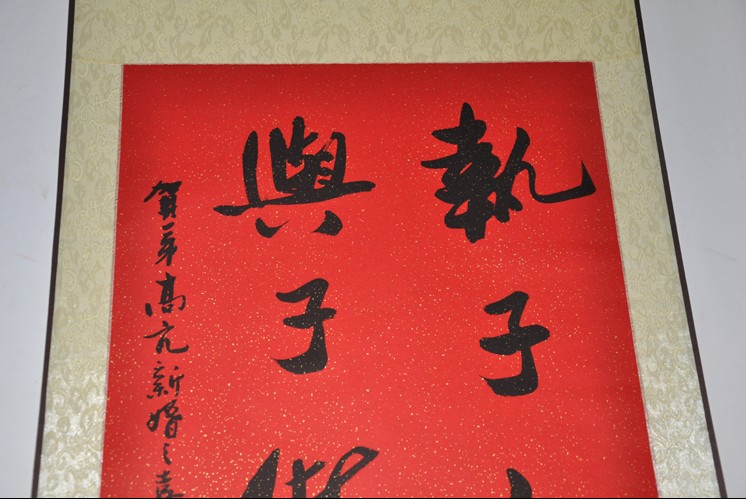 執子
與子
賀弟高亢新婚之喜